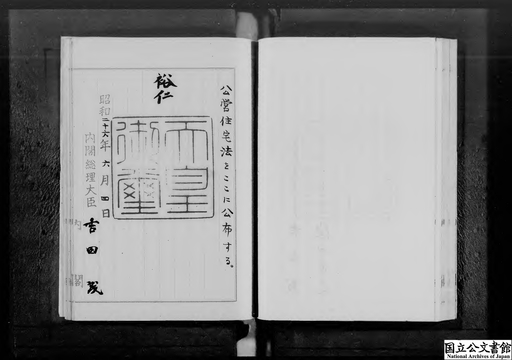 公営住宅法をここに公布する。
裕仁
天皇御璽
昭和二十六年六月四日
内閣総理大臣 吉田茂
国立公文書館
National Archives of Japan